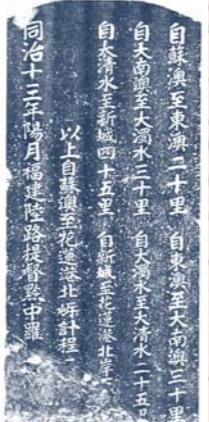 自蘇澳至東澳二十里 自東澳至大南澳三十里
自大南澳至大濁水三十里 自大濁水至大清水二十五里
自大清水至新城四十五里 自新城至花蓮港北岸
以上自蘇澳至花蓮港北岸計程
同治十三年陽月福建陸路提督黔中羅